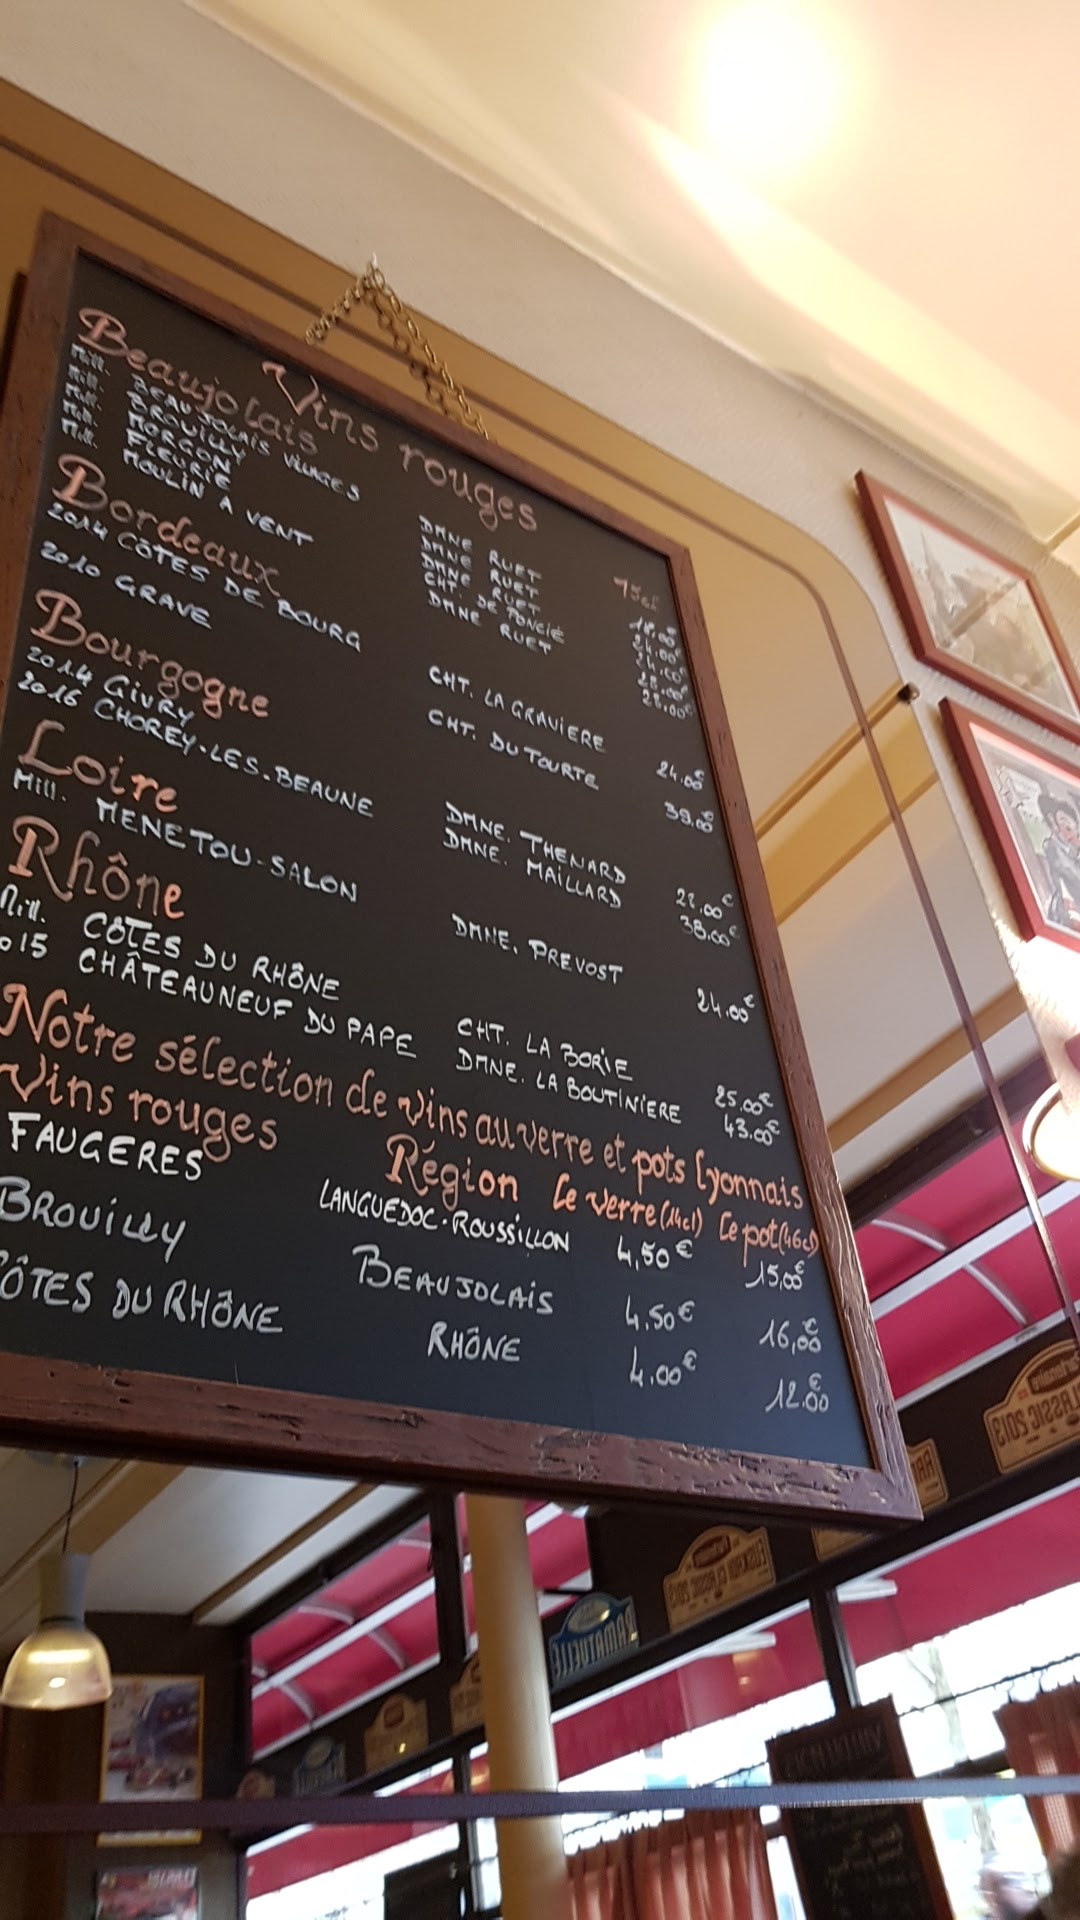 Vins rouges
Beaujolais 75cl
Mill. BEAUJOLAIS VILLAGES DMNE RUET 18.00€
Mill. BROUILLY DMNE RUET 24.00€
Mill. MORGON DMNE RUET 24.00€
Mill. FLEURIE CHT. DE PONCIÉ 28.00€
Mill. MOULIN A VENT DMNE RUET 28.00€
Bordeaux
2014 CÔTES DE BOURG CHT. LA GRAVIERE 24.00€
2010 GRAVE CHT. DU TOURTE 39.00€
Bourgogne
2014 GIVRY DMNE. THENARD 00€
2016 CHOREY-LES-BEAUNE DMNE. MAILLARD 38.00€
Loire
Mill. MENETOU-SALON DMNE. PREVOST 24.00€
Rhône
Mill. CÔTES DU RHÔNE CHT. LA BORIE 25.00€
015 CHÂTEAUNEUF DU PAPE DMNE. LA BOUTINIERE 43.00€
Notre sélection de vins au verre et pots lyonnais
Vins rouges Région Le verre (14cl) Le pot (46cl)
FAUGERES LANGUEDOC-ROUSSILLON 4,50€ 15,00€
BROUILLY BEAUJOLAIS 4.50€ 16,00€
CÔTES DU RHÔNE RHÔNE 4.00€ 12.00€
CLASSIC 2013
CLASSIC 2013
RAMATUELLE